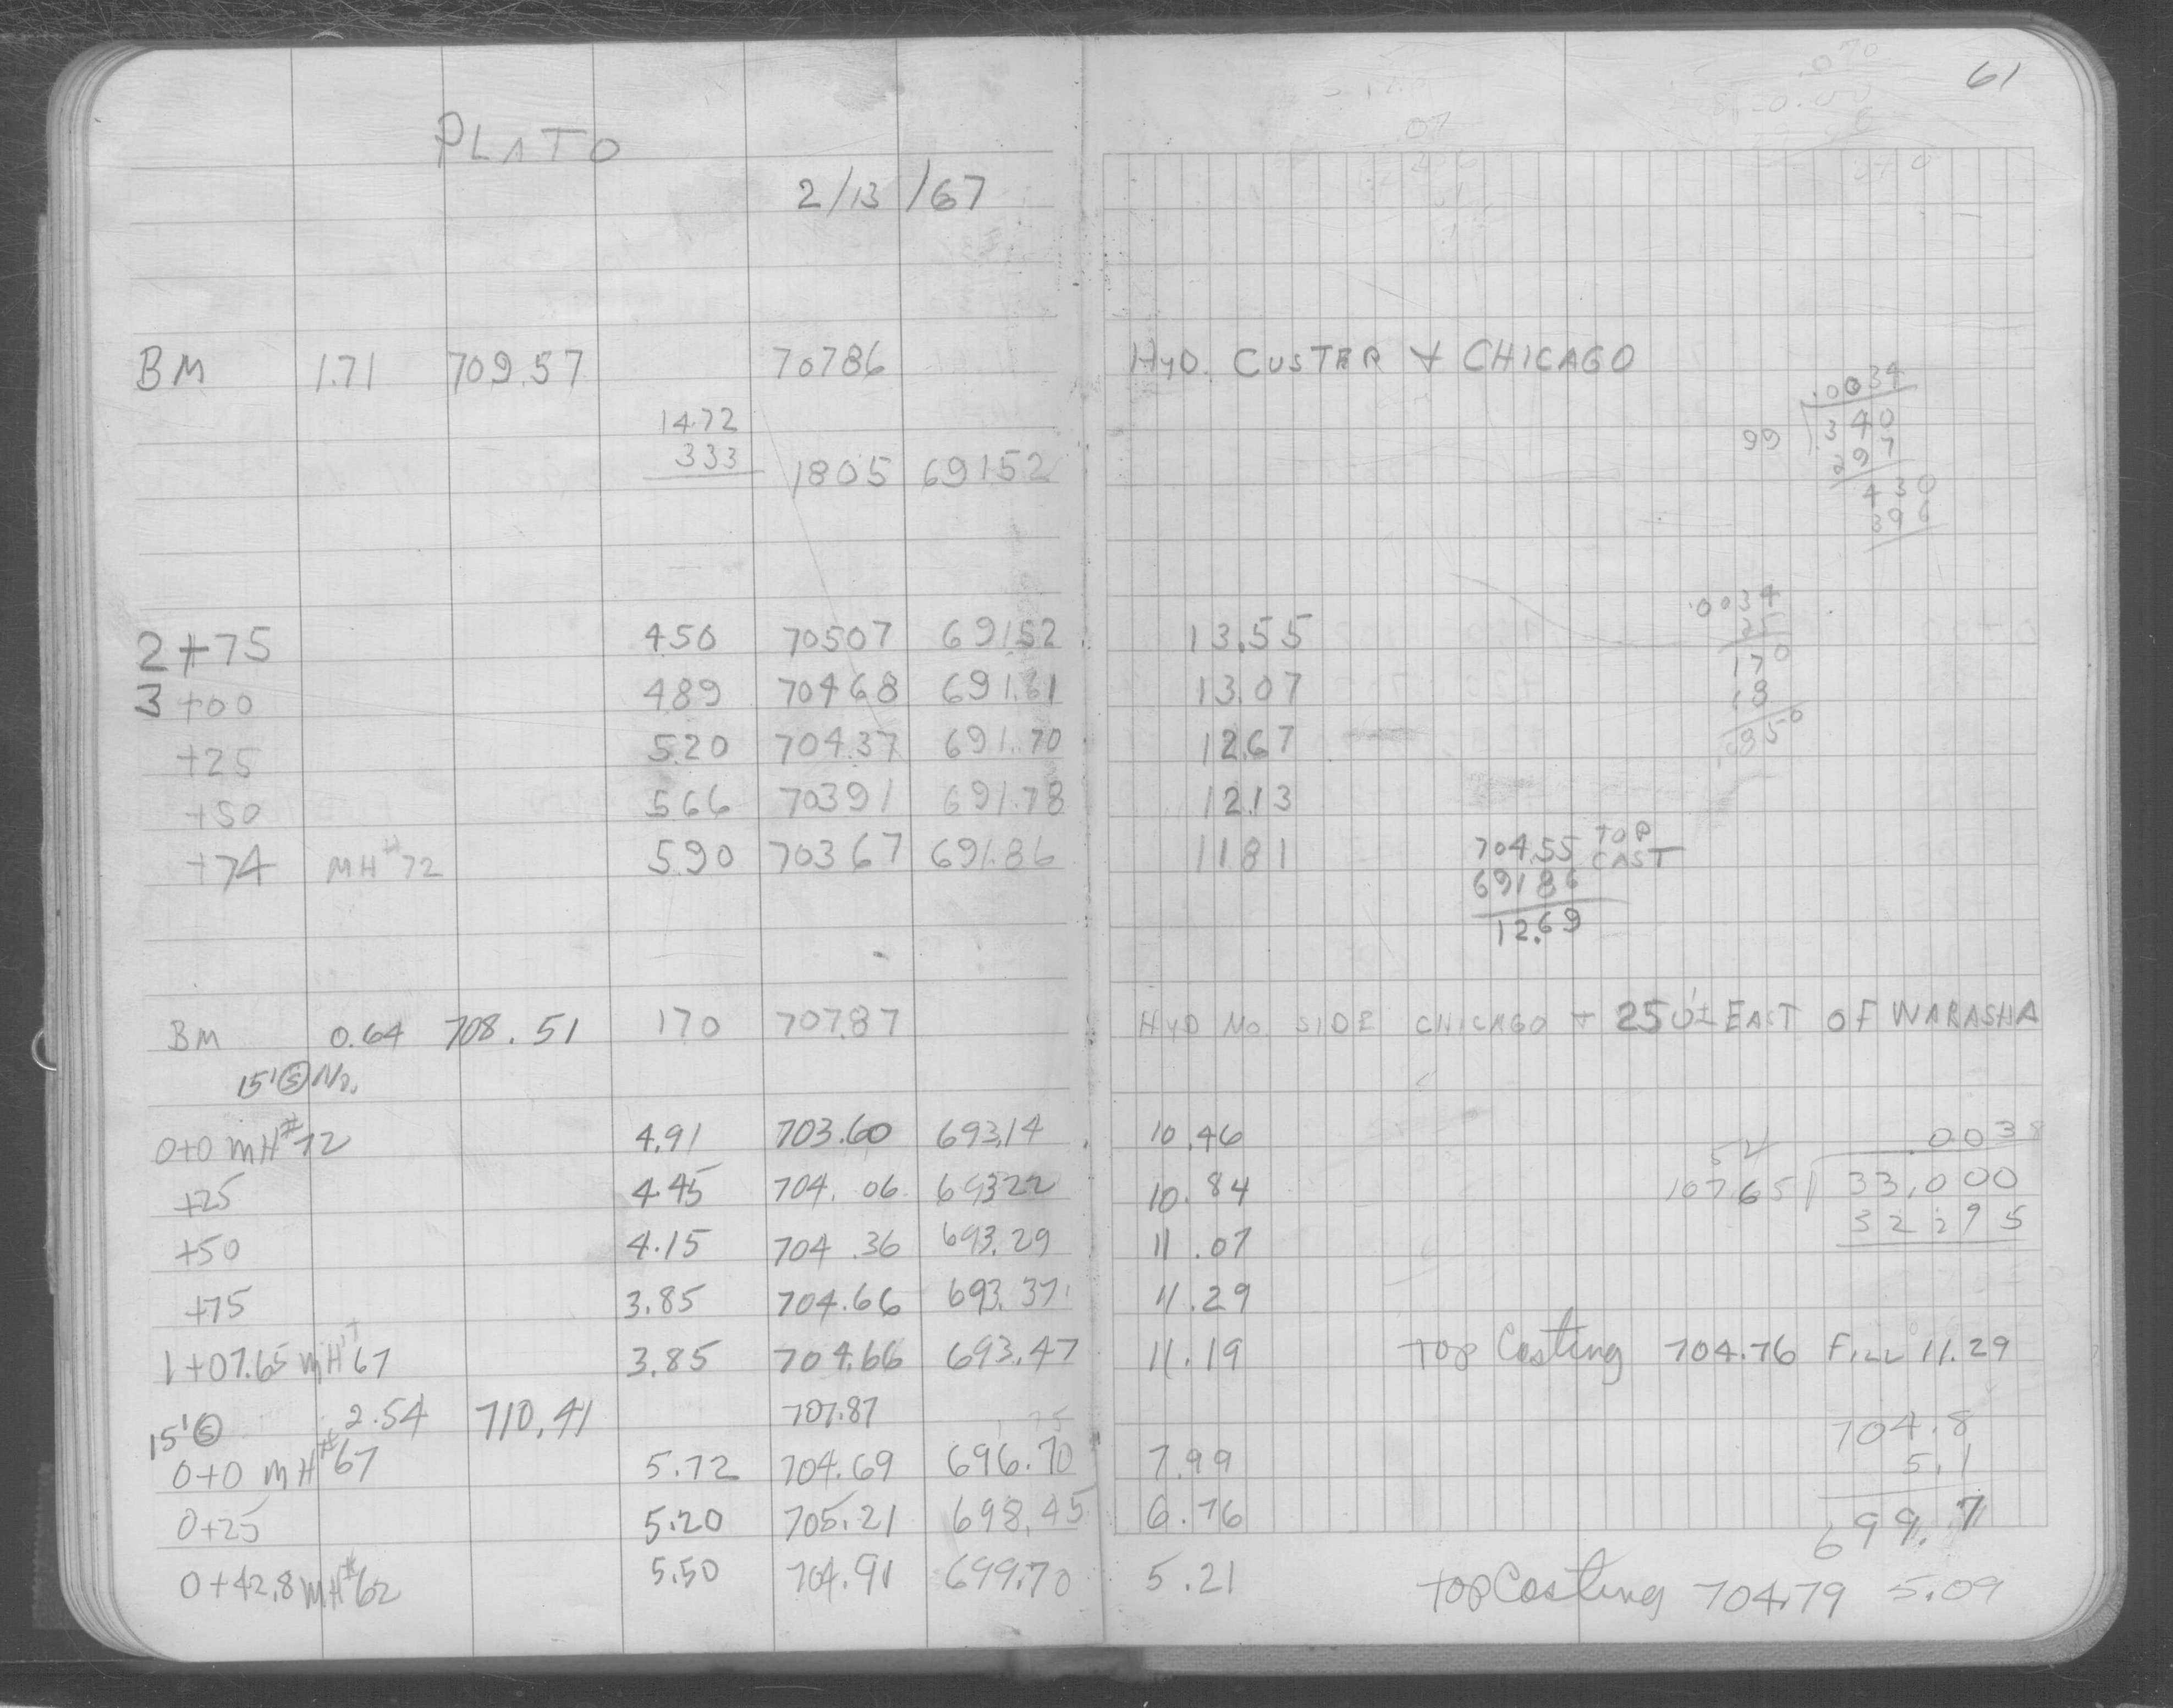 61
PLATO
2/13/67
BM 1.71 709.57 70786 HYD. CUSTER + CHICAGO
1472
333
1805 69152
.0034
99 340
297
430
396
2+75 450 70507 69152 13.55
3+00 489 70468 691.61 13.07
+25 5.20 704.37 691.70 12.67
+50 566 70391 691.78 12.13
+74 MH#72 590 70367 691.86 11.81
.0034
25
170
.0850
704.55 TOP CAST
69186
12.69
BM 0.64 708.51 170 707.87 HYD NO. SIDE CHICAGO + 250'± EAST OF WABASHA
15'Ⓢ No.
0+0 MH#72 4.91 703.60 693.14 10.46
+25 4.45 704.06 69322 10.84
+50 4.15 704.36 693.29 11.07
+75 3.85 704.66 693.37 11.29
.003
107.65 33.000
32295
1+07.65 MH 67 3.85 704.66 693.47 11.19 Top Casting 704.76 Fill 11.29
15'Ⓢ 2.54 710.41 707.87
0+0 MH#67 5.72 704.69 696.70 7.99
0+25 5.20 705.21 698.45 6.76
704.8
5.1
699.7
0+42.8 MH#62 5.50 704.91 699.70 5.21 Top Casting 704.79 5.09